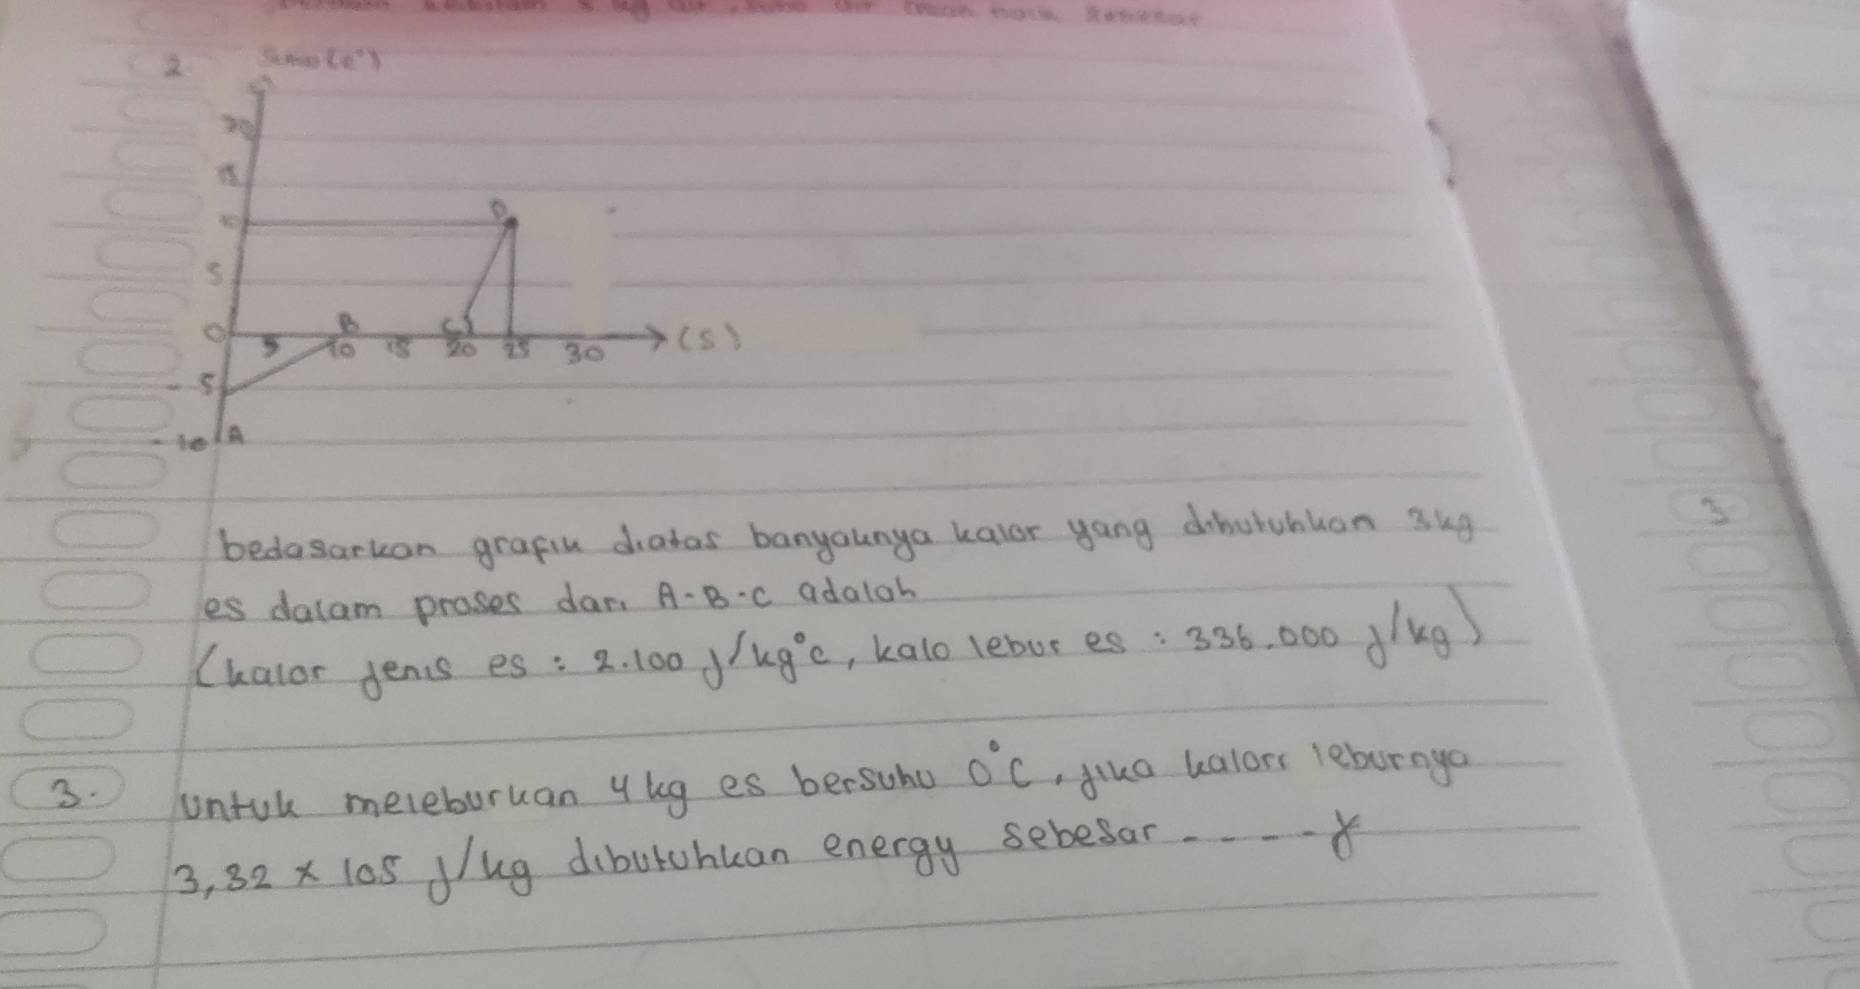 2. Suhu (c°)
20
15
D
5
0 B C (S)
5 10 15 20 25 30
- 5
- 10 A
bedasarkan grafik diatas banyaknya kalor yang dibutuhkan 3 kg
es dalam proses dari A-B-C adalah
(kalor jenis es : 2.100 J/kg°c, kalo lebur es : 336.000 J/kg)
3
3. Untuk meleburkan 4 kg es bersuhu 0°C, jika kalor leburnya
3,32 × 105 J/kg dibutuhkan energy sebesar ----- J